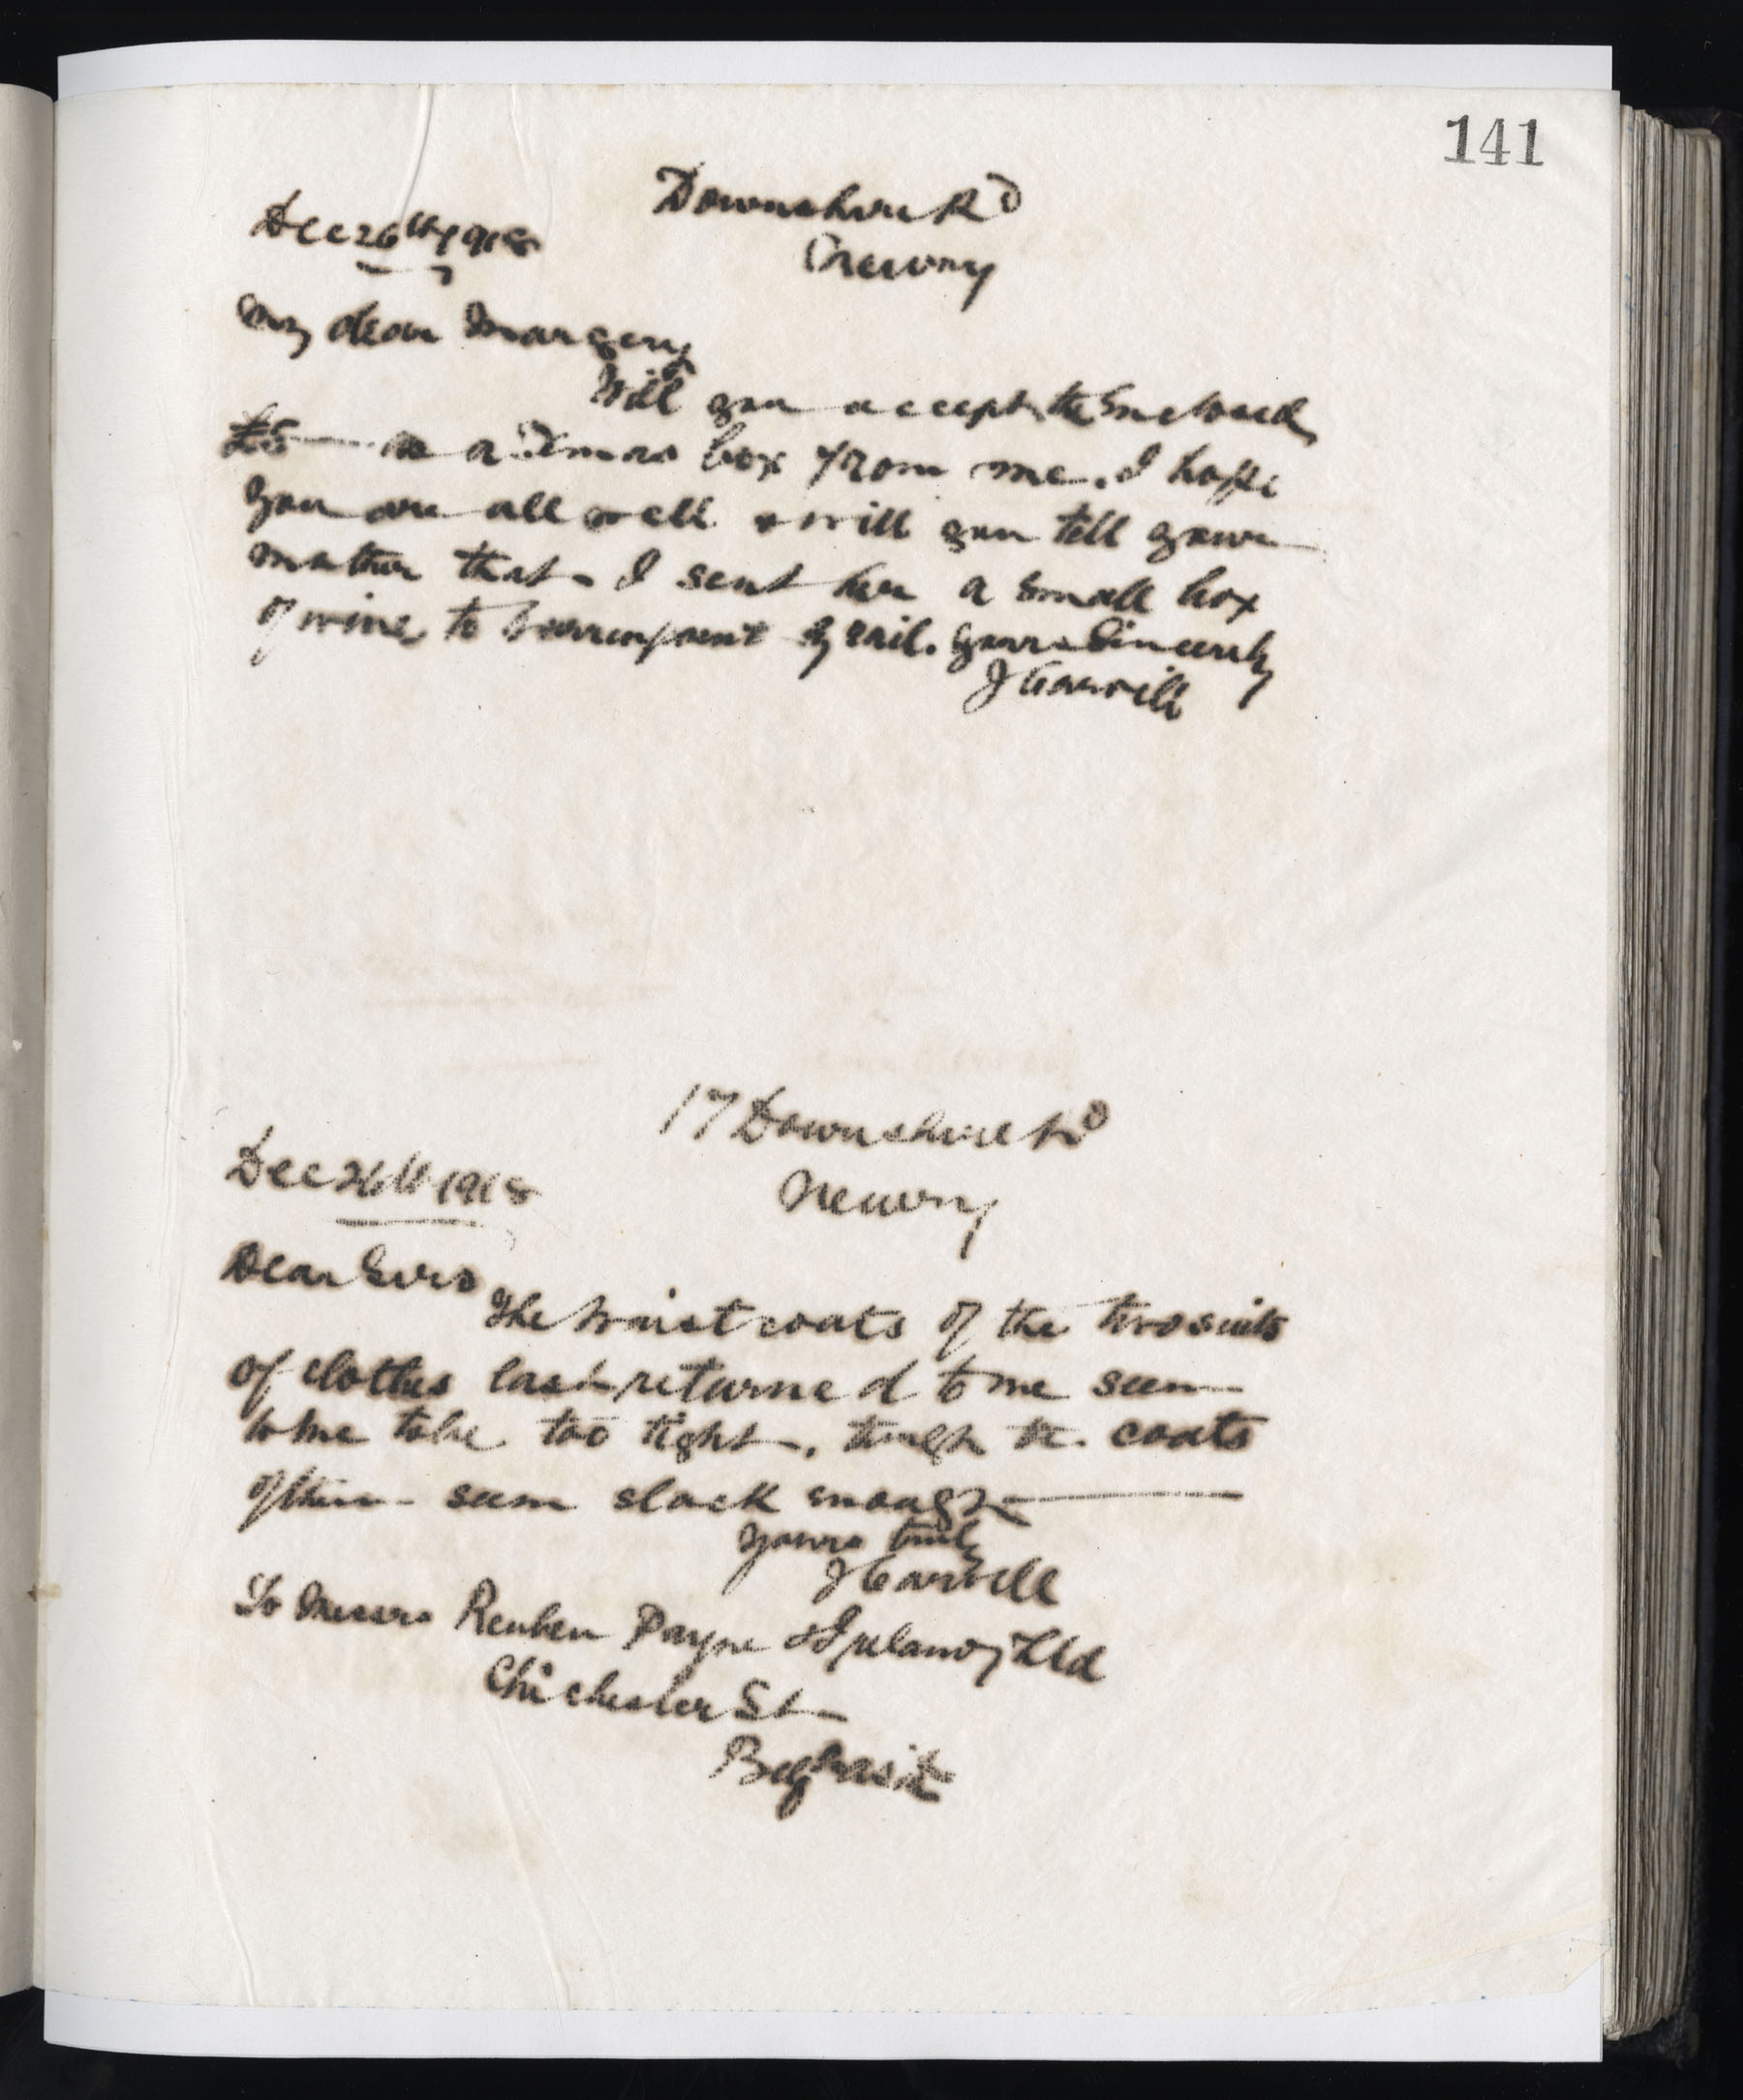 141
Downshire Rd
Dec 26th 1918
Newry
My dear Margery
Will you accept the Enclosed
£5 — as a Xmas box from me. I hope
you are all well & will you tell your
mother that I sent her a small box
of wine to Warrenpoint by rail. Yours Sincerely
J Carvill
17 Downshire Rd
Dec 26th 1918
Newry
Dear Sirs
The Waistcoats of the two suits
of clothes last returned to me seem
to me to be too tight, tough the coats
of them seem slack enough —
Yours truly
J Carvill
To Messrs Reuben Payne & Ltd
Chichester St
Belfast